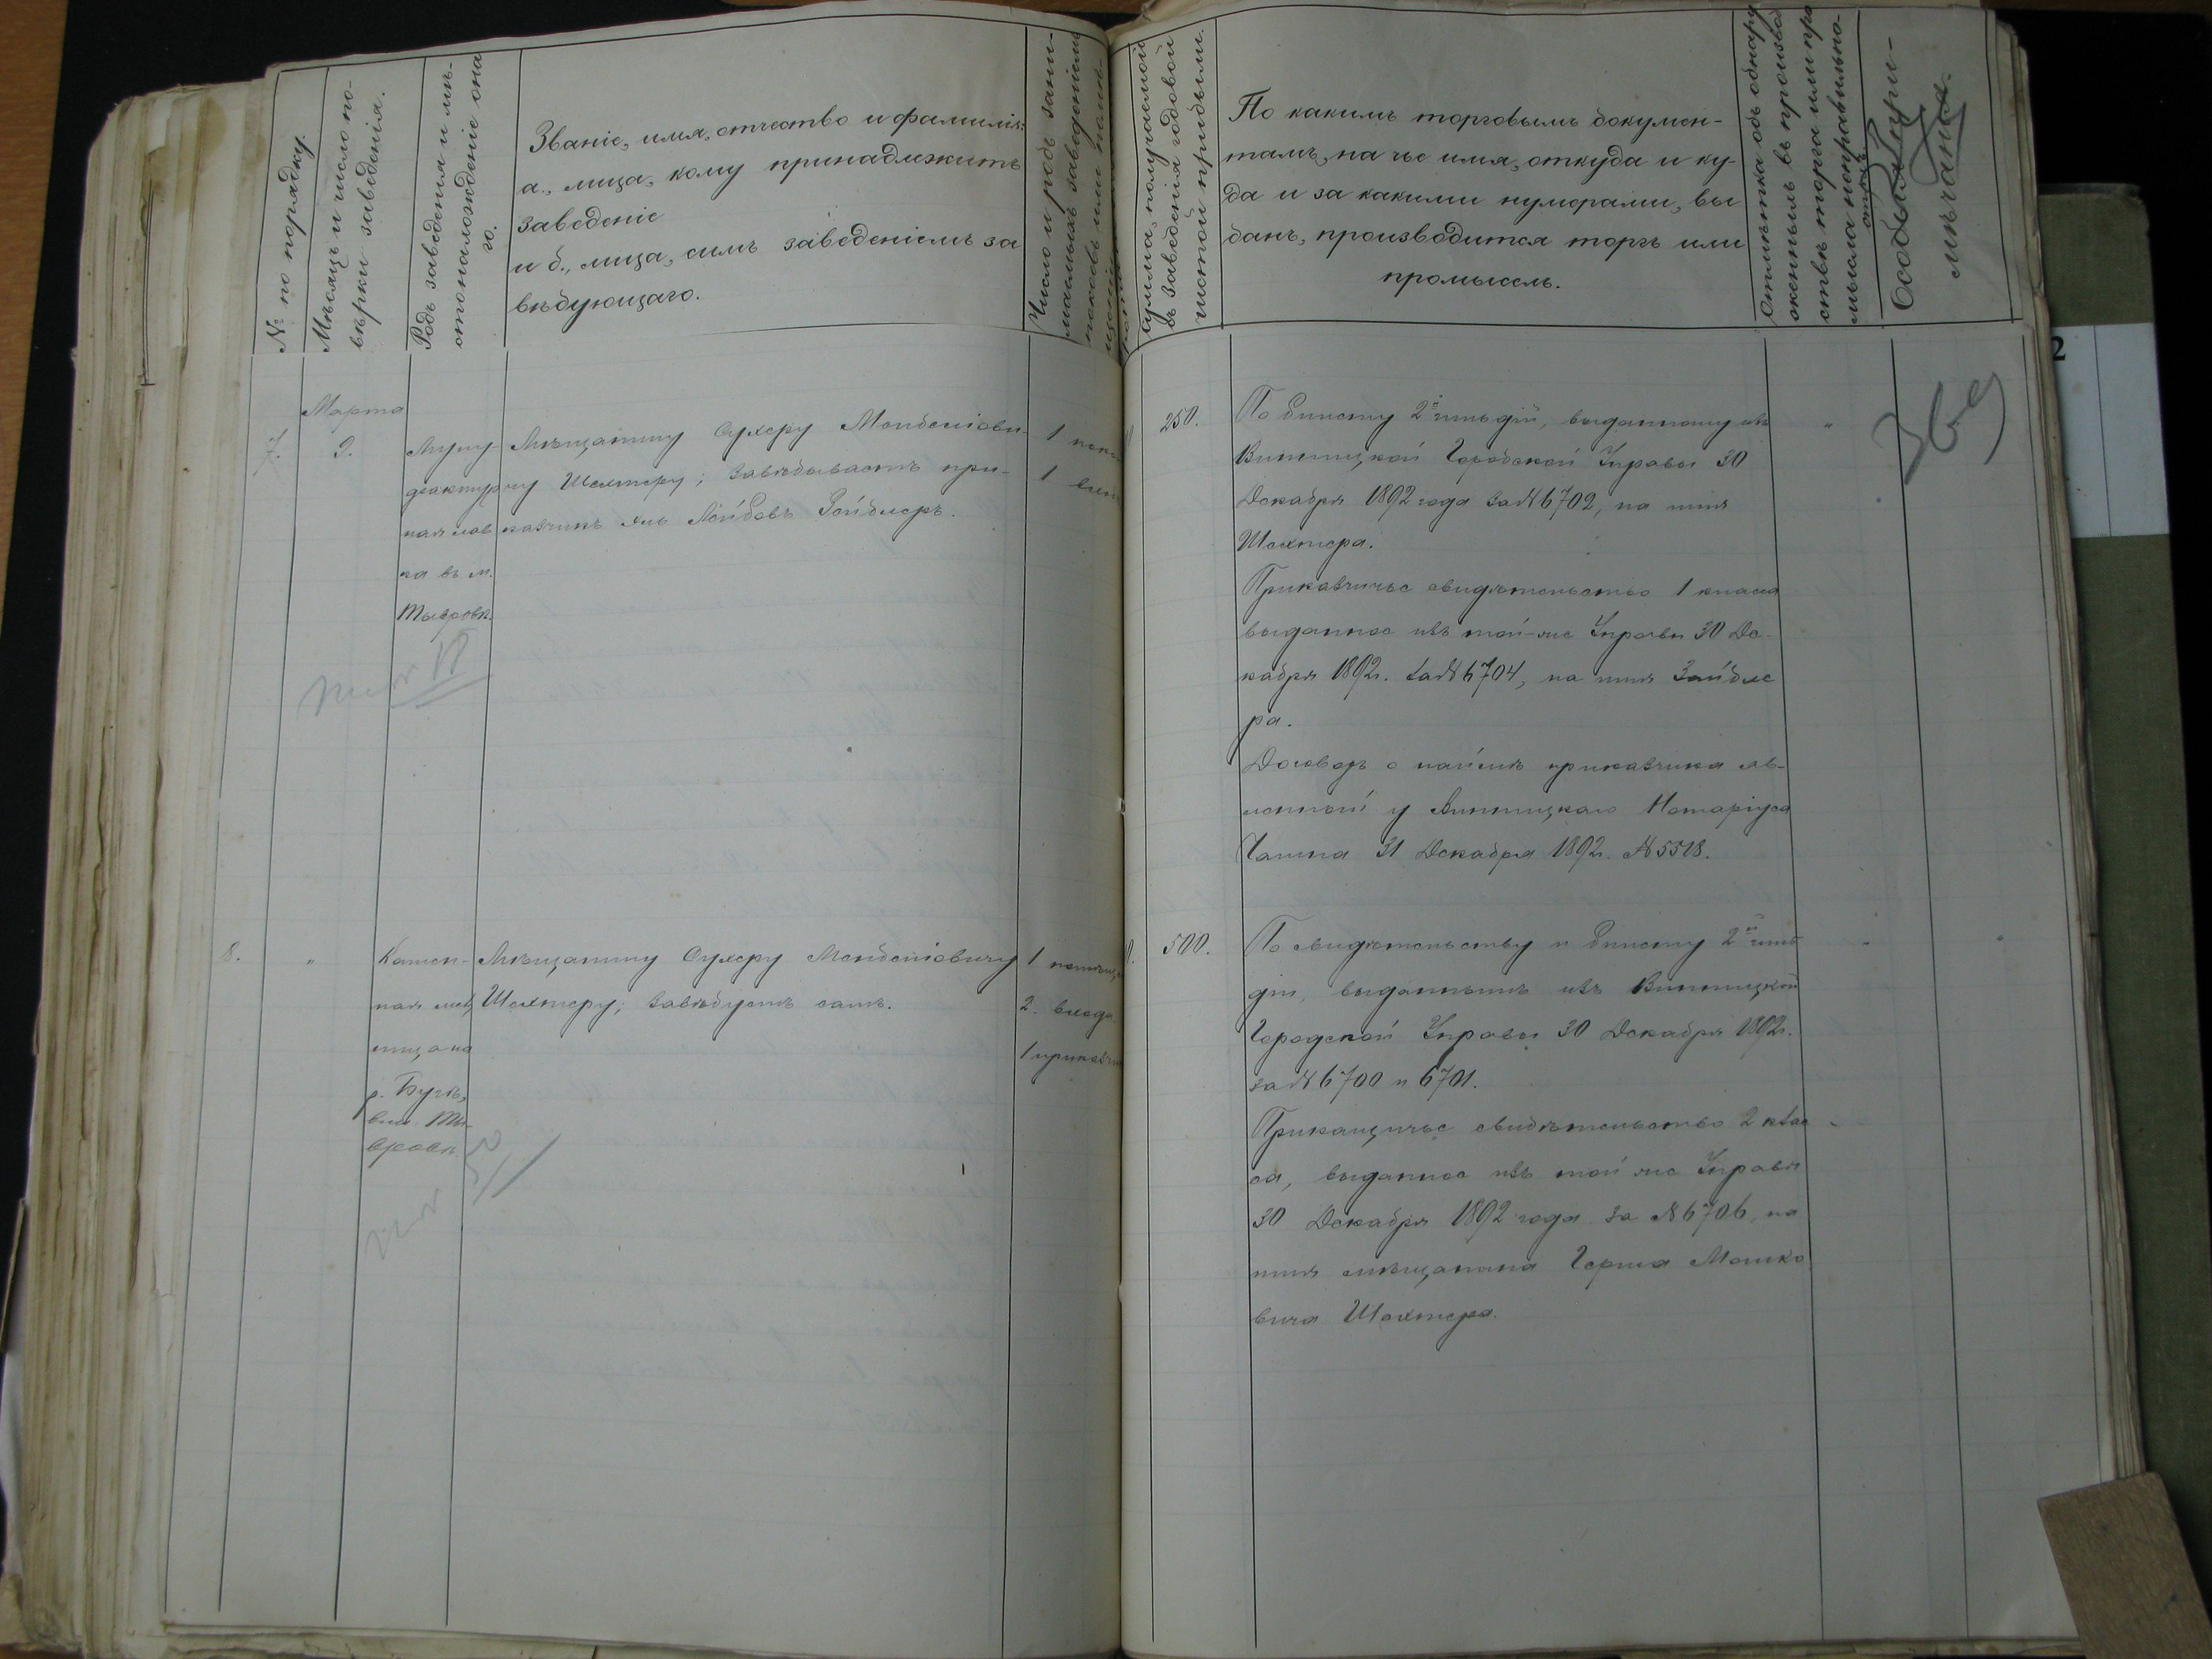 № по порядку.
Мѣсяцъ и число по-
вѣрки заведенія.
Родъ заведенія и мѣ-
стонахожденіе она
го.
Званіе, имя, отчество и фамилія:
а., лица, кому принадлежитъ
заведеніе
и б., лица, симъ заведеніемъ за
вѣдующаго.
Число и родъ зани-
маемыхъ заведеніемъ
Сумма, получаемой
въ заведенія годовой
чистой прибыли.
По какимъ торговымъ докумен-
тамъ, на чье имя, откуда и ку-
да и за какими нумерами, вы
данъ, производится торгъ или
промыселъ.
Отмѣтка объ обнару
женныхъ въ производ
ствѣ торга или про
мысла неправильно-
стяхъ
Особыя при-
мѣчанія.
7.
Марта
9.
Ману-
фактур
ная лав
ка въ м.
Тывровѣ.
Мѣщанину Сухеру Менделіови-
чу Шехтеру; завѣдываетъ при-
казчикъ его Лейбовъ Зейдлеръ.
1
1
250.
По билету 2й гильдіи, выданному изъ
Винницкой Городской Управы 30
Декабря 1892 года за № 6702, на имя
Шехтера.
Приказчичье свидѣтельство 1 класса
выданное изъ той-же Управы 30 Де-
кабря 1892г. за № 6704, на имя Зейдле
ра.
Договоръ о наймѣ приказчика яв-
ленной у Винницкаго Нотаріуса
31 Декабря 1892г. № 5518.
"
8.
"
р. Бугѣ,
близ. Ты-
вровъ
Мѣщанину Сухеру Менделіовичу
Шехтеру; завѣдуетъ самъ.
1
2. входа
1 приказчи
500.
По свидѣтельству и билету 2й гиль
діи, выданнымъ изъ Винницкой
Городской Управы 30 Декабря 1892г.
за № 6700 и 6701.
Прикащичье свидѣтельство 2 клас
са, выданное изъ той же Управы
30 Декабря 1892 года за № 6706, на
имя мѣщанина Герша Мошко
вича Шехтера.